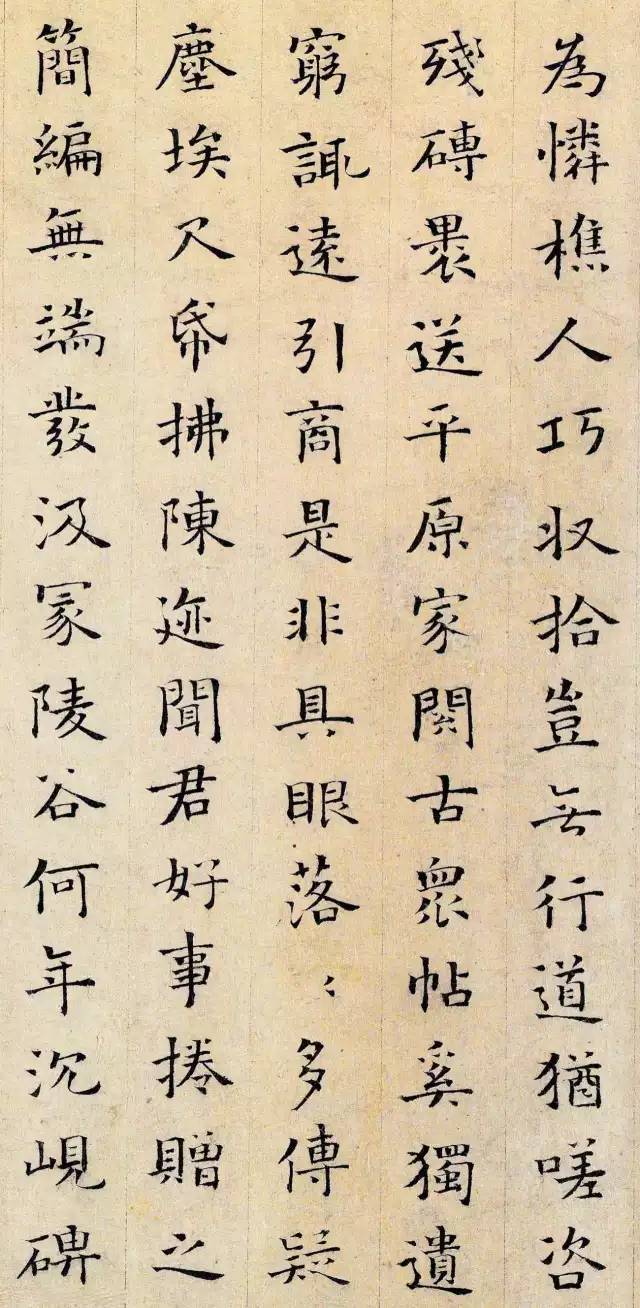 為憐樵人巧収拾豈无行道猶嗟咨
殘磚裹送平原家閱古衆帖奚獨遺
窮諏遠引商是非具眼落〻多傳疑
塵埃尺帋拂陳迹聞君好事捲贈之
簡編無端發汲冢陵谷何年沉峴碑